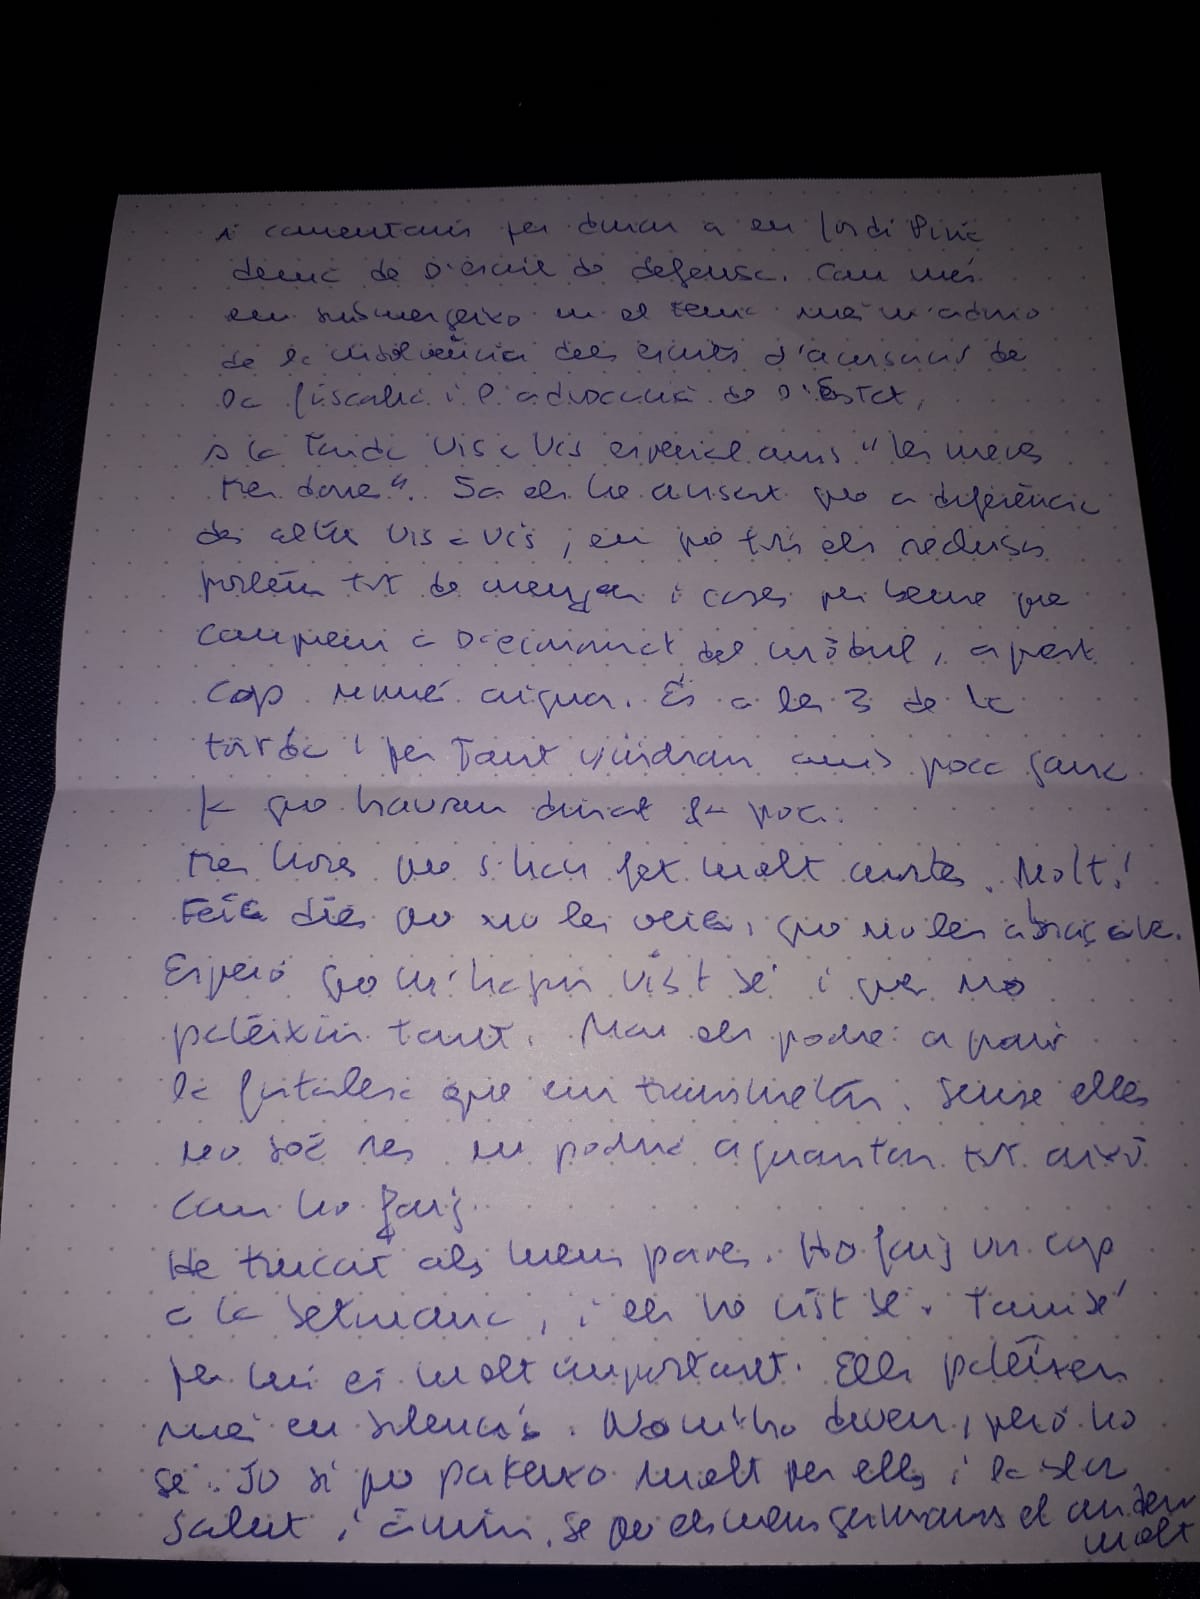 i comentaris per donar a en Jordi Pina
demà de l'escrit de defensa. Com més
em submergeixo en el tema més m'adono
de la insolvència dels escrits d'acusació de
la fiscalia i l'advocacia de l'Estat.
A la tarda vis a vis especial amb "les meves
tres dones". Ja els he avisat que a diferència
dels altres vis a vis, en que tots els reclusos
portem tot de menjar i coses per beure que
comprem a l'economat del mòdul, aquest
cop només aigua. És a les 3 de la
tarda i per tant vindran amb poca gana
ja que hauran dinat fa poc.
Tres hores que s'han fet molt curtes. Molt!
Feia dies que no les veia, que no les abraçava.
Espero que m'hagin vist bé i que no
pateixin tant. Mai els podré a pair
la fortalesa que em transmeten. Sense elles
no sóc res ni podria aguantar tot això
com ho faig.
He trucat als meus pares. Ho faig un cop
a la setmana, i els he vist bé. També
per mi és molt important. Ells pateixen
més en silenci. No m'ho diuen, però ho
sé. Jo si que pateixo molt per ells i la seva
salut i ànim. Sé que els meus germans el cuiden
molt